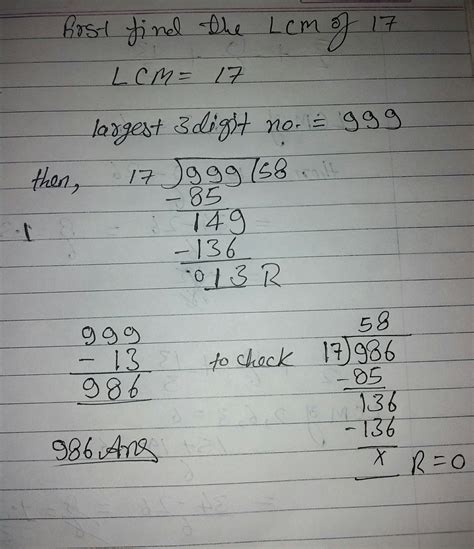 first find the LCM of 17
LCM = 17
largest 3 digit no. = 999
then, 17)999(58
-85
149
-136
013 R
999
- 13
986
986 Ans
to check
58
17)986
-85
136
-136
x R=0